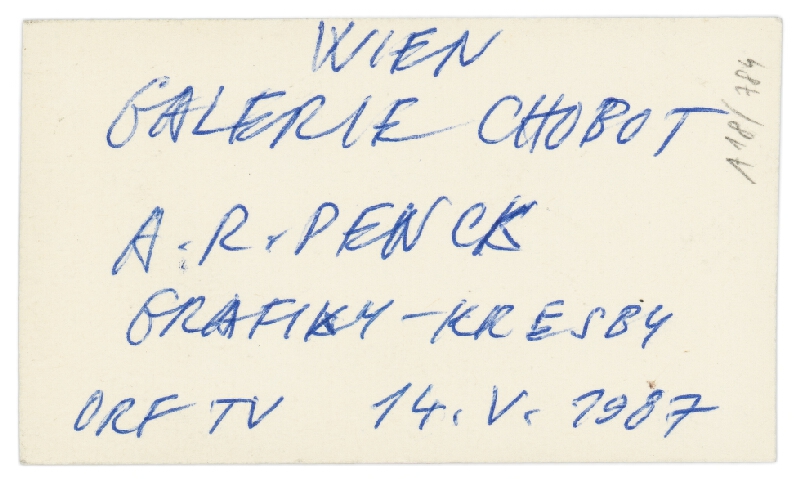 WIEN
GALERIE CHOBOT
A.R. PENCK
GRAFIKY-KRESBY
ORF TV 14. V. 1987
118/784